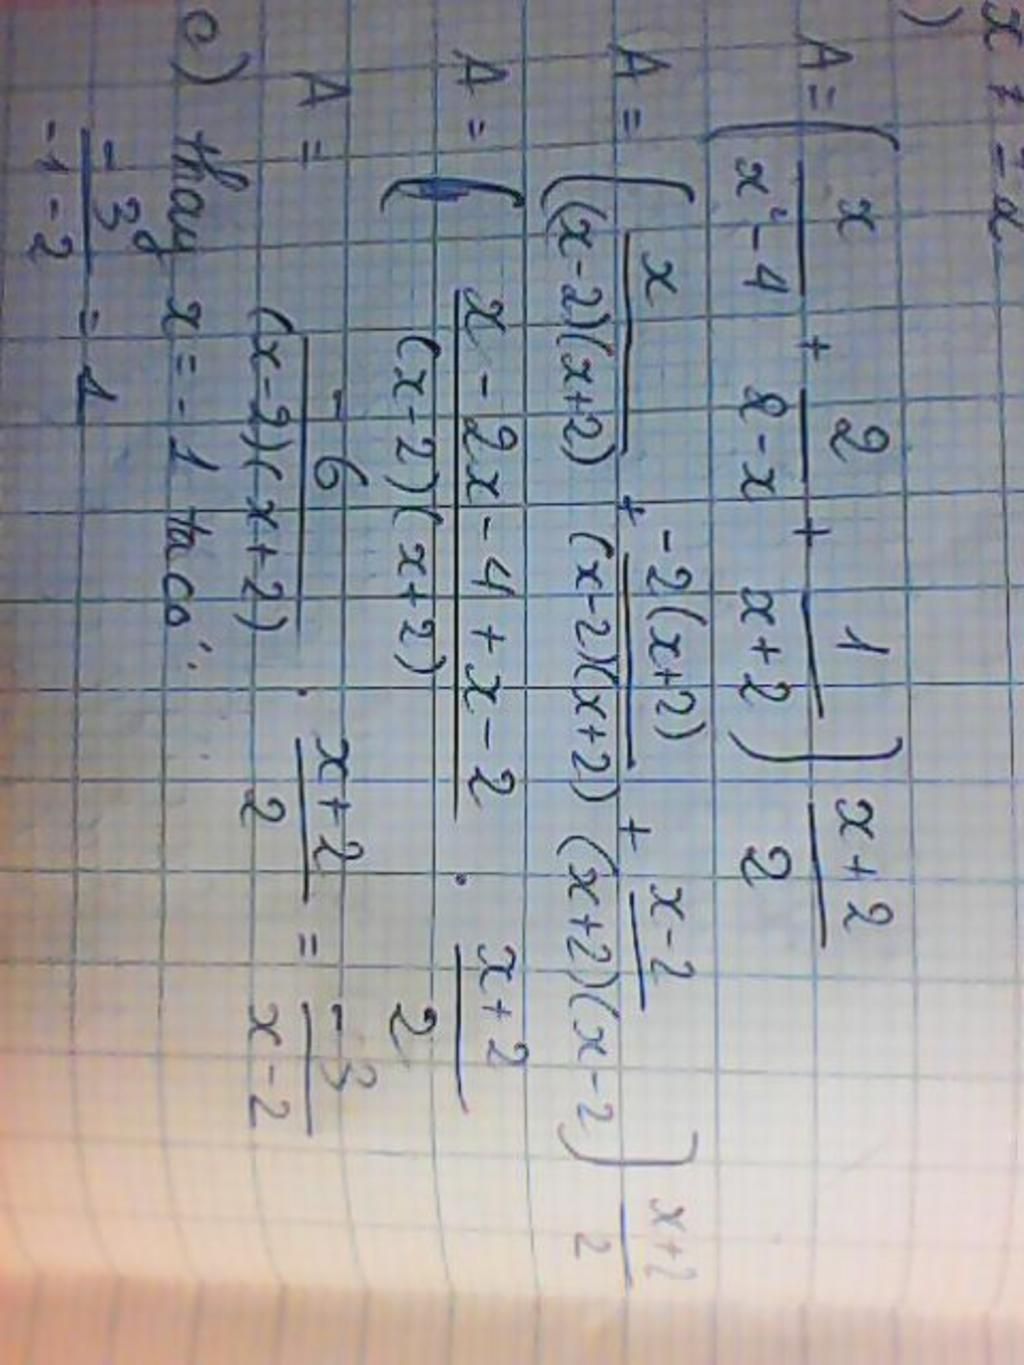 x ≠ -2
)
A = ( x/(x² - 4) + 2/(2 - x) + 1/(x + 2) ) (x + 2)/2
A = ( x/((x - 2)(x + 2)) + -2(x + 2)/((x - 2)(x + 2)) + (x - 2)/((x + 2)(x - 2)) ) (x + 2)/2
A = ( (x - 2x - 4 + x - 2)/((x - 2)(x + 2)) . (x + 2)/2
A = -6/((x - 2)(x + 2)) . (x + 2)/2 = -3/(x - 2)
c) thay x = -1 ta có:
-3/(-1 - 2) = 1